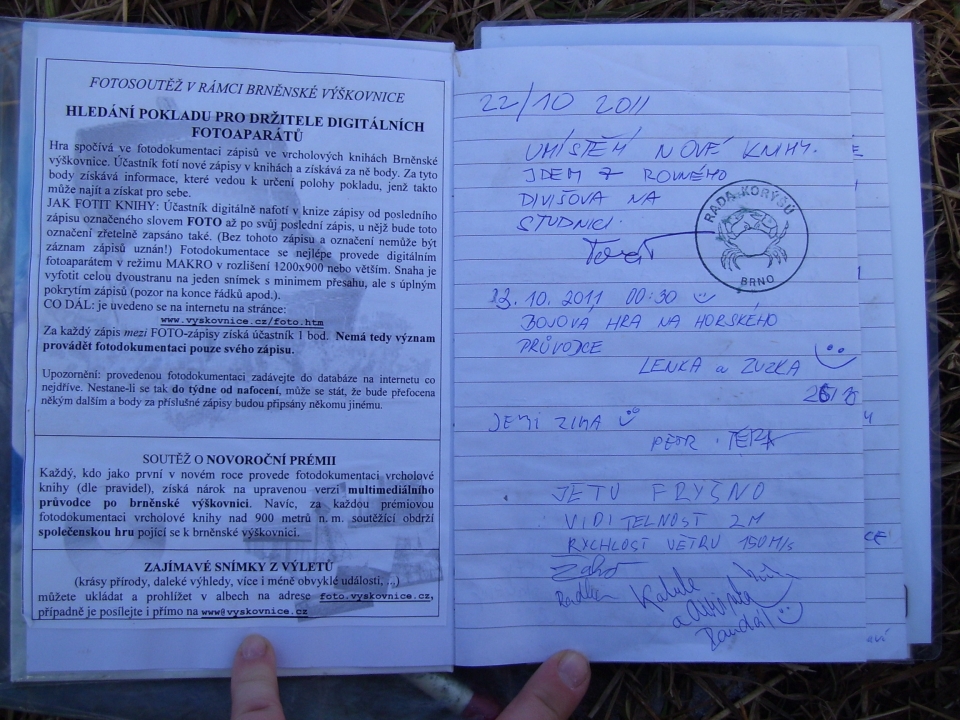 FOTOSOUTĚŽ V RÁMCI BRNĚNSKÉ VÝŠKOVNICE
HLEDÁNÍ POKLADU PRO DRŽITELE DIGITÁLNÍCH
FOTOAPARÁTŮ
Hra spočívá ve fotodokumentaci zápisů ve vrcholových knihách Brněnské
výškovnice. Účastník fotí nové zápisy v knihách a získává za ně body. Za tyto
body získává informace, které vedou k určení polohy pokladu, jenž takto
může najít a získat pro sebe.
JAK FOTIT KNIHY: Účastník digitálně nafotí v knize zápisy od posledního
zápisu označeného slovem FOTO až po svůj poslední zápis, u nějž bude toto
označení zřetelně zapsáno také. (Bez tohoto zápisu a označení nemůže být
záznam zápisů uznán!) Fotodokumentace se nejlépe provede digitálním
fotoaparátem v režimu MAKRO v rozlišení 1200x900 nebo větším. Snaha je
vyfotit celou dvoustranu na jeden snímek s minimem přesahu, ale s úplným
pokrytím zápisů (pozor na konce řádků apod.).
CO DÁL: je uvedeno se na internetu na stránce:
www.vyskovnice.cz/foto.htm
Za každý zápis mezi FOTO-zápisy získá účastník 1 bod. Nemá tedy význam
provádět fotodokumentaci pouze svého zápisu.
Upozornění: provedenou fotodokumentaci zadávejte do databáze na internetu co
nejdříve. Nestane-li se tak do týdne od nafocení, může se stát, že bude přefocena
někým dalším a body za příslušné zápisy budou připsány někomu jinému.
SOUTĚŽ O NOVOROČNÍ PRÉMII
Každý, kdo jako první v novém roce provede fotodokumentaci vrcholové
knihy (dle pravidel), získá nárok na upravenou verzi multimediálního
průvodce po brněnské výškovnici. Navíc, za každou prémiovou
fotodokumentaci vrcholové knihy nad 900 metrů n. m. soutěžící obdrží
společenskou hru pojící se k brněnské výškovnici.
ZAJÍMAVÉ SNÍMKY Z VÝLETŮ
(krásy přírody, daleké výhledy, více i méně obvyklé události, ...)
můžete ukládat a prohlížet v albech na adrese foto.vyskovnice.cz,
případně je posílejte i přímo na www@vyskovnice.cz
22/10 2011
UMÍSTĚNÍ NOVÉ KNIHY.
JDEM Z ROVNÉHO
DIVIŠOVA NA
STUDNICI.
RADA KORÝŠŮ
BRNO
23.10.2011 00:30
BOJOVÁ HRA NA HORSKÉHO
PRŮVODCE
LENKA a ZUZKA
JE MI ZIMA
PETR
JE TU FRYŠNO
VIDITELNOST 2M
RYCHLOST VĚTRU 150M/s